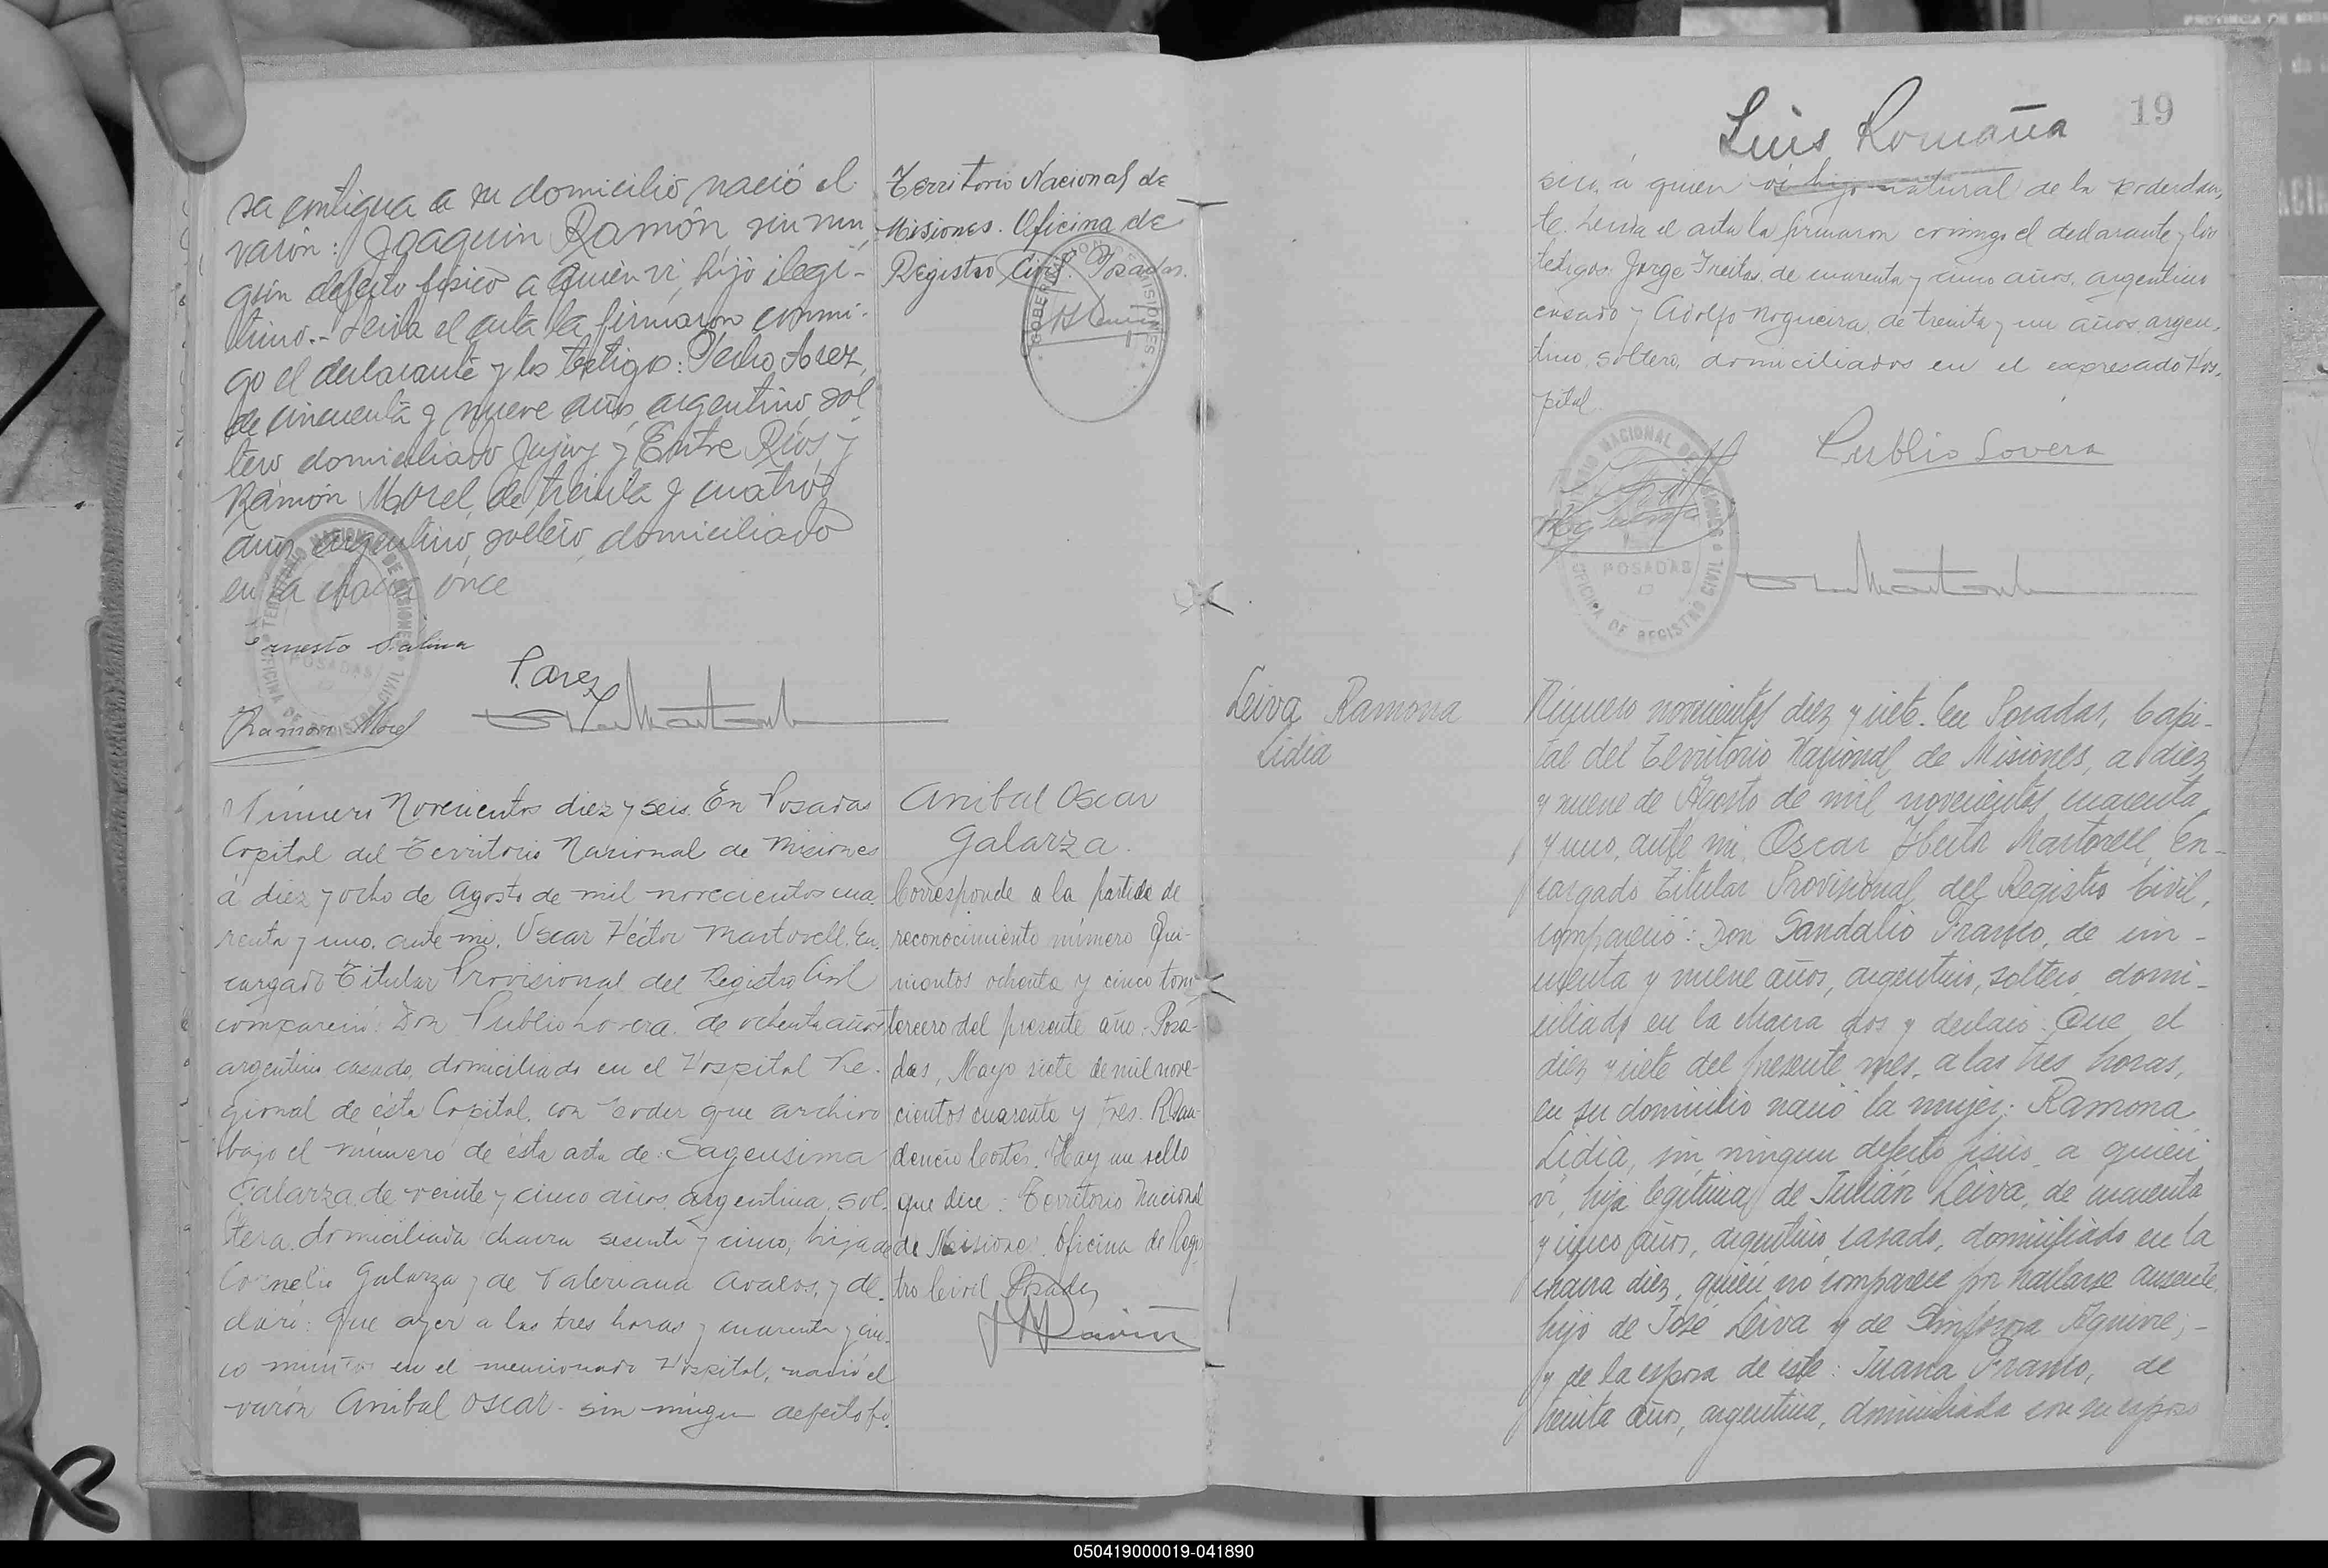 sa contigua a su domicilio nació el
varón: Joaquin Ramón, sin nin
gún defecto fisico a quien vi, hijo ilegi-
timo.- Leida el acta la firmaron conmi-
go el declarante y los testigos: Pedro
de cincuenta y nueve años, argentino, sol
tero domiciliado Jujuy y Entre Ríos y
Ramón Morel, de treinta y cuatro
años argentino, soltero, domiciliado
en la chacra once
Ernesto Salina
Ramon Morel
TERRITORIO NACIONAL DE MISIONES
OFICINA DE REGISTRO CIVIL
POSADAS
Territorio Nacional de
Misiones. Oficina de
Registro Civil. Posadas.
Número Novecientos diez y seis. En Posadas
Capital del Territorio Nacional de Misiones
á diez y ocho de Agosto de mil novecientos cua-
renta y uno, ante mi, Oscar Héctor Martorell, En
cargado Titular Provisional del Registro Civil
compareció: Don Publio Lovera de ochenta años
argentino casado, domiciliado en el Hospital Re-
gional de ésta Capital, con Poder que archivo
bajo el número de ésta acta de:
Galarza, de veinte y cinco años, argentina, sol-
tera domiciliada chacra sesenta y cinco, hija de
Cornelio Galarza y de Valeriana Avalos, y de-
claró: Que ayer a las tres horas y cuarenta y cin-
co minutos en el mencionado Hospital, nació el
varón Anibal Oscar - sin ningun defecto fi-
Anibal Oscar
Galarza.
Corresponde a la partida de
reconocimiento número Qui-
nientos ochenta y cinco tomo
tercero del presente año: Posa-
das, Mayo siete de mil nove-
cientos cuarenta y tres.
Hay un sello
que dice: Territorio Nacional
de Misiones. Oficina de Regis
tro Civil Posadas
19
Luis Romaña
sico, á quien ví hijo natural de la poderdan-
te. Leida el acta la firmaron conmigo el declarante y los
testigos: Jorge Freitas, de cuarenta y cinco años, argentino
casado y Adolfo Nogueira, de treinta y un años, argen-
tino, soltero, domiciliados en el expresado Hos-
pital.
Publio Lovera
TERRITORIO NACIONAL DE MISIONES
POSADAS
OFICINA DE REGISTRO CIVIL
Leiva Ramona
Lidia
Número novecientos diez y siete. En Posadas, Capi-
tal del Territorio Nacional de Misiones, a diez
y nueve de Agosto de mil novecientos cuarenta
y uno, ante mi, Oscar Héctor Martorell, En-
cargado Titular Provisional del Registro Civil,
compareció: Don Sandalio Franco, de cin-
cuenta y nueve años, argentino, soltero, domi-
ciliado en la chacra dos y declaró: Que el
diez y siete del presente mes, a las tres horas,
en su domicilio nació la mujer: Ramona
Lidia, sin ningun defecto fisico, a quien
vi, hija legítima de Julián Leiva, de cuarenta
y cinco años, argentino, casado, domiciliado en la
chacra diez, quién nó comparece por hallarse ausente,
hijo de José Leiva y de Sinforosa Aguirre;-
y de la esposa de éste: Juana Franco, de
treinta años, argentina, domiciliada con su esposo
050419000019-041890